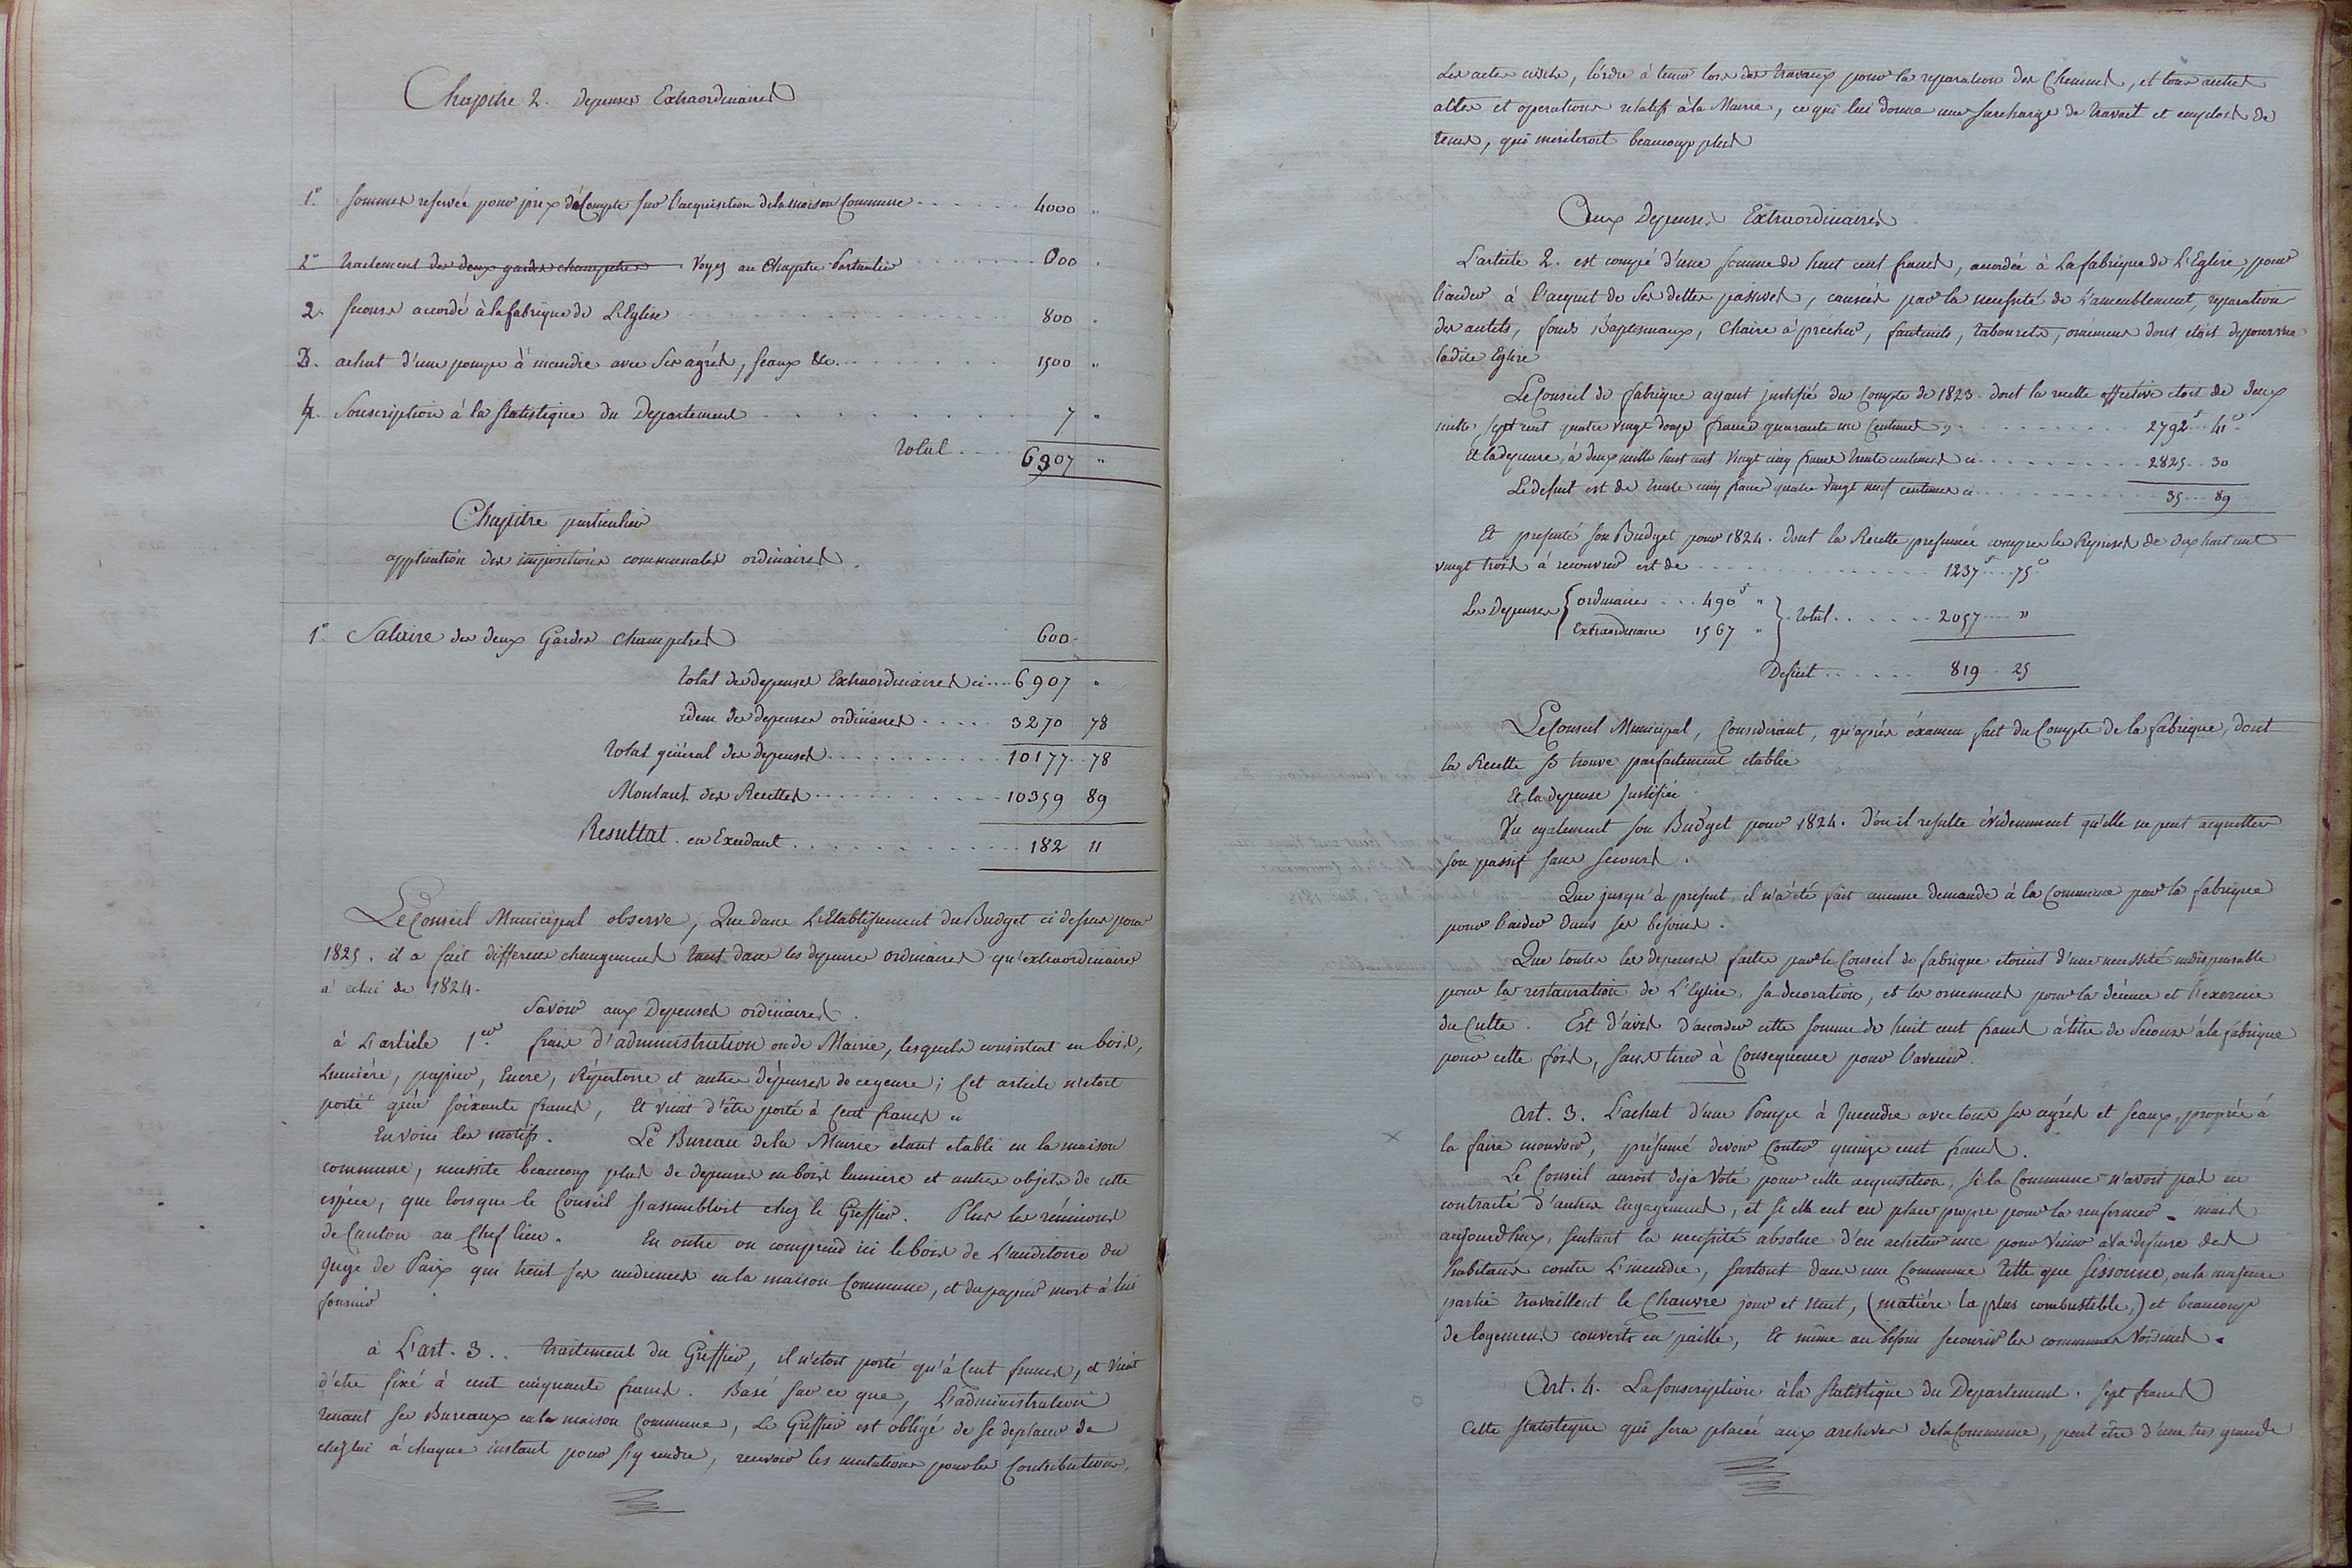 Chapitre 2. Depenses Extraordinaires
1° Sommes reservée pour prix d'àCompte sur l'acquisition de la maison Commune 4000 "
2° traitement des deux gardes champetres Voyez au Chapitre Particulier 000 "
2. secours accordé à la fabrique de L'Eglise 800 "
3. achat d'une pompe à incendie avec ses agrés, seaux &c. 1500 "
4. Souscription à la Statistique du Departement 7 "
total 6307 "
Chapitre particulier
application des impositions communales ordinaires.
1° Salaire des deux Gardes champetres 600
total des depenses Extraordinaires ci 6907 "
idem des depenses ordinaires 3270 78
total général des depenses 10177 78
Montant des Recettes 10359 89
Resultat en Excedant 182 11
Le Conseil Municipal observe, Que dans L'Etablissement du Budget ci dessus pour
1825. il a fait differens changemens tant dans les depenses ordinaires qu'extraordinaires
à celui de 1824.
Savoir aux Depenses ordinaires.
à L'article 1er. frais d'administration ou de Mairie, lesquels consistent en bois,
Lumière, papier, Encre, Répertoire et autres dépenses de ce genre; cet article n'etoit
porté qu'à soixante francs, Et vient d'être porté à Cent francs ci
En voici les motifs. Le Bureau de la Mairie etant etabli en la maison
commune, necessite beaucoup plus de depenses en bois lumiere et autres objets de cette
espéce, que lorsque le Conseil s'assembloit chez le Greffier. Plus les réunions
de Canton au Chef lieu. En outre on comprend ici le bois de L'auditoire du
Juge de Paix qui tient ses audiences en la maison Commune, et du papier mort à lui
fournir
à L'art. 3.. traitement du Greffier, il n'etoit porté qu'à Cent francs, et vient
d'etre fixé à cent cinquante francs. Basé sur ce que, L'administration
tenant ses Bureaux en la maison Commune, Le Greffier est obligé de se deplacer de
chez lui à chaque instant pour s'y rendre, recevoir les mutations pour les Contributions,
Les actes civils, L'ordre à tenir lors des travaux pour la reparation des Chemins, et tous autres
actes et operations relatifs à la Mairie, ce qui lui donne une surcharge de travail et emplois de
tems, qui meriteroit beaucoup plus
Aux Depenses Extraordinaires
L'article 2. est compé d'une somme de huit cent francs, accordée à La fabrique de L'Eglise, pour
l'aider à l'acquit de Ses dettes passives, causées par la necessité de L'ameublement, reparation
des autels, fonds Baptismaux, Chaire à prêcher, fauteuils, tabourets, ornemens dont etoit depourvue
ladite Eglise
Le Conseil de fabrique ayant justifié du Compte de 1823. dont la recette effective etoit de deux
mille, sept cent quatre vingt douze francs quarante un Centimes, 2792 f 41 c
Et la depense, à deux mille huit cent vingt cinq francs trente centimes ci 2825 30
Le deficit est de trente cinq francs quatre vingt neuf centimes ci 35 89
Et presenté son Budget pour 1824. dont la Recette presumée compris les Reprises de dix huit cent
vingt trois à recouvrer est de 1237 f 75 c
Les Depenses { ordinaires 490 f "
Extraordinaire 1567 " } total 2057 "
Deficit 819 25
Le Conseil Municipal, Considerant, qu'aprés éxamen fait du Compte de la fabrique, dont
la Recette se trouve parfaitement etablie
Et la depense justifiée
Vu egalement son Budget pour 1824. d'ou il resulte évidemment qu'elle ne peut acquitter
son passif sans secours.
Que jusqu'à present il n'a été fait aucune demande à la Commune par la fabrique
pour l'aider dans ses besoins.
Que toutes les depenses faites par le Conseil de fabrique etoient d'une necessité indispensable
pour la restauration de L'Eglise, sa decoration, et les ornemens pour la décence et l'exercice
du Culte. Est d'avis d'accorder cette somme de huit cent francs à titre de Secours à la fabrique
pour cette fois, sans tirer à Consequence pour l'avenir.
Art. 3. L'achat d'une Pompe à Incendie avec tous ses agrés et seaux, propres à
la faire mouvoir, présumé devoir Couter quinze cent francs.
Le Conseil auroit deja Voté pour cette acquisition, si la Commune n'avoit pas eu
contracté d'autres Engagemens, et si elle eut eu place propre pour la renfermer. mais
aujourd'huy, sentant la necessité absolue d'en acheter une pour venir à la deffense des
habitans contre L'incendie, surtout dans une Commune telle que Sissonne, ou la majeure
partie travaillent le Chanvre jour et nuit, (matiére la plus combustible,) et beaucoup
de logemens couverts en paille, Et même au besoin secourir les communes Voisines.
Art. 4. La souscription à la Statistique du Departement. sept francs
Cette Statistique qui sera placée aux archives de la Commune, peut être d'une trés grande